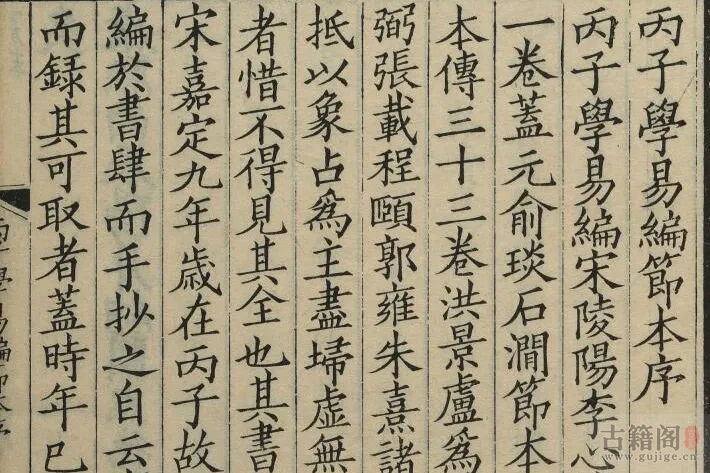 丙子學易編節本序
丙子學易編宋陵陽李心
一卷蓋元俞琰石澗節本
本傳三十三卷洪景盧為
弼張載程頤郭雍朱熹諸
抵以象占為主盡埽虛無
者惜不得見其全也其書
宋嘉定九年歲在丙子故
編於書肆而手抄之自云
而録其可取者蓋時年已
學易編節本序
古籍阁
www.gujige.cn